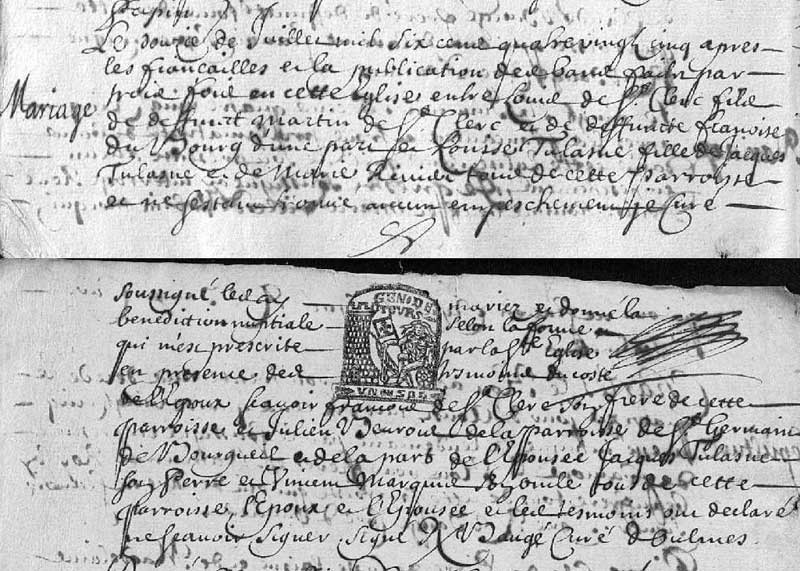 Le douze de Juillet mil six cent quatre vingt cinq apres
les fiancailles et la publication des bans faicte par
trois fois en cette Eglise entre Louis de St. Clerc fils
Mariage
de deffunct Martin de St Clerc et de deffuncte françoise
du Bourg d'une part et Louise Tulasne fille de Jacques
Tulasne et de Marie tous de cette Parroisse
et ne sestant trouvé aucun empeschement je Curé
soussigné les ay mariez et donné la
benediction nuptiale selon la forme
qui m'est prescrite par la Ste Eglise
en presence des tesmoins du costé
de l'Epoux scavoir françois de St Clerc son frere de cette
parroisse et Julien de la parroisse de St Germain
de Bourgueil et de la part de l'Epousée Jacques Tulasne
son Perre et Vincent Marquis son oncle tous de cette
parroisse, l'Epoux et l'Epousée et les tesmoins ont declaré
ne scavoir signer, signé Baugé Curé
GEN DE
TOURS
VN SOS